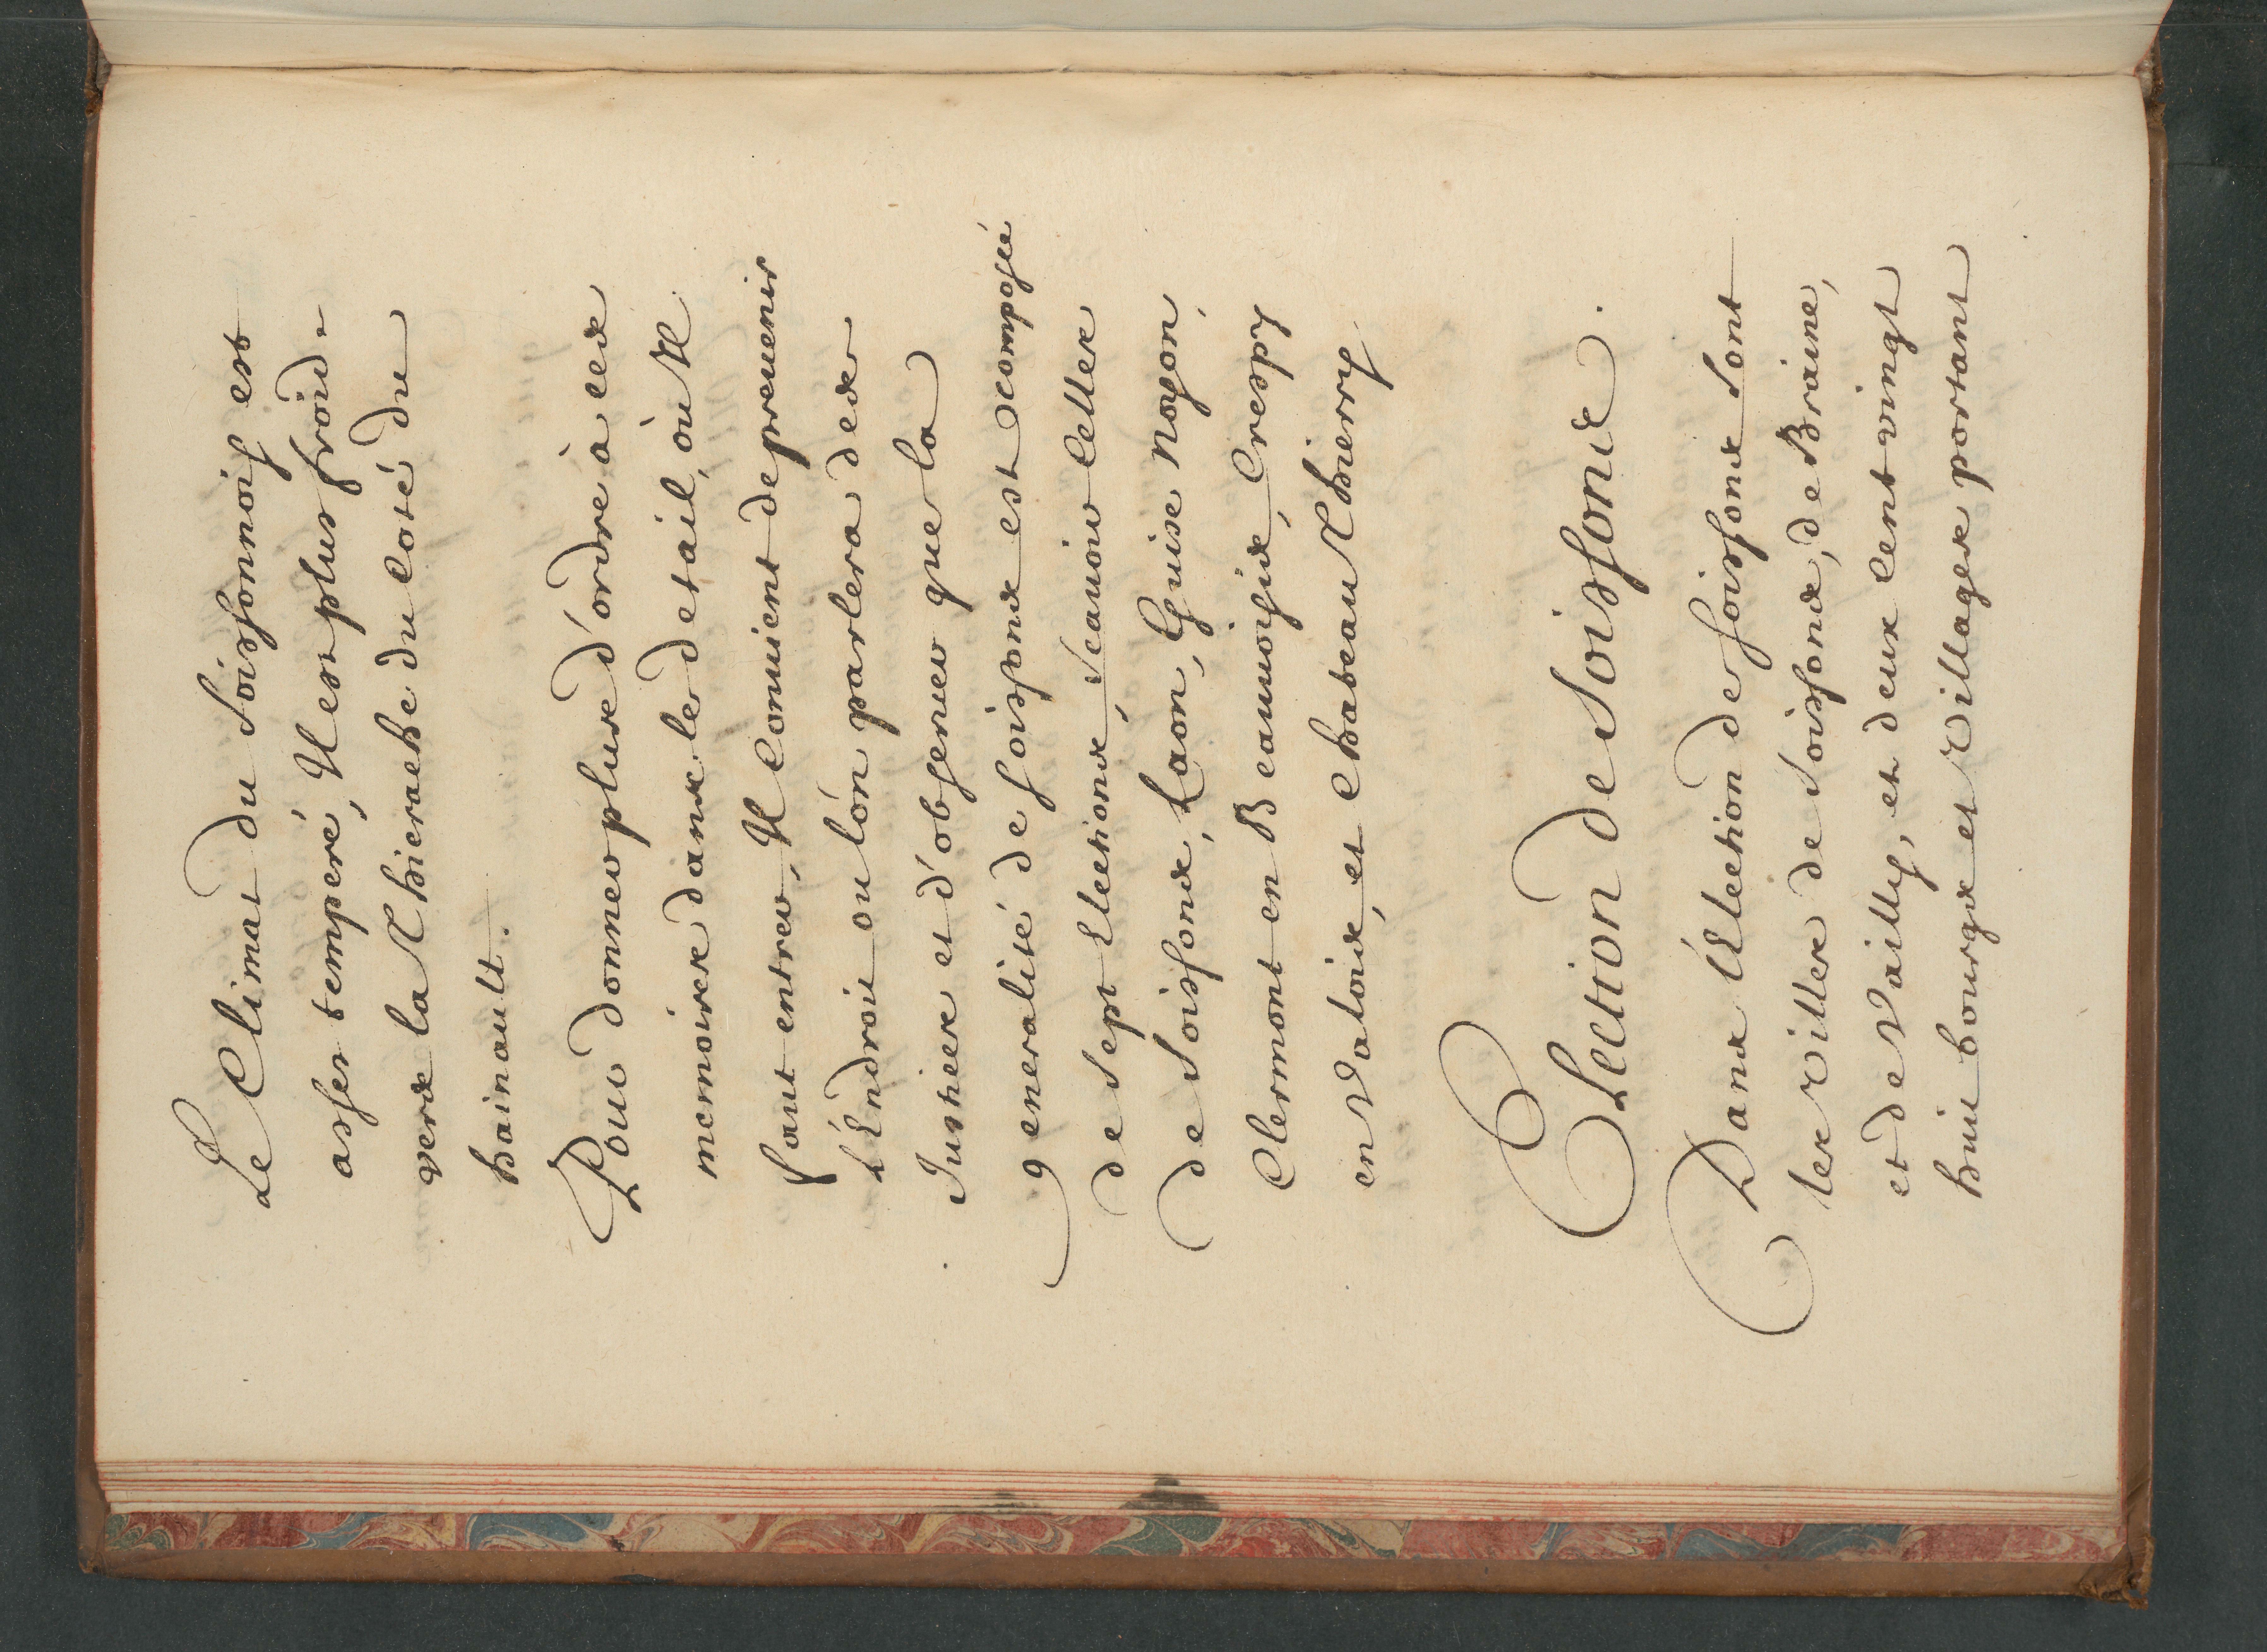 Le Climat du Soissonnois est
asses temperé, Il est plus froid
vers la Thierache du Coté du
hainault.
Pour donner plus d'ordre à ces
memoires dans le detail, où Il
faut entrer, Il Conuient de preuenir
l'Endroit ou lón parlera des
Justices et d'obseruer que la
generalité de soissons est composée
de Sept Elections, Scauoir Celles
de Soissons, Laon, Guise Noyon,
Clermont en Beauuoisis, Crespy
en Valois, et Chateau Thierry
Election de Soissons.
Dans l'Election de soissons Sont
les Villes de Soissons, de Braine,
et de Vailly, et deux Cent vingt
huit bourgs et Villages portant